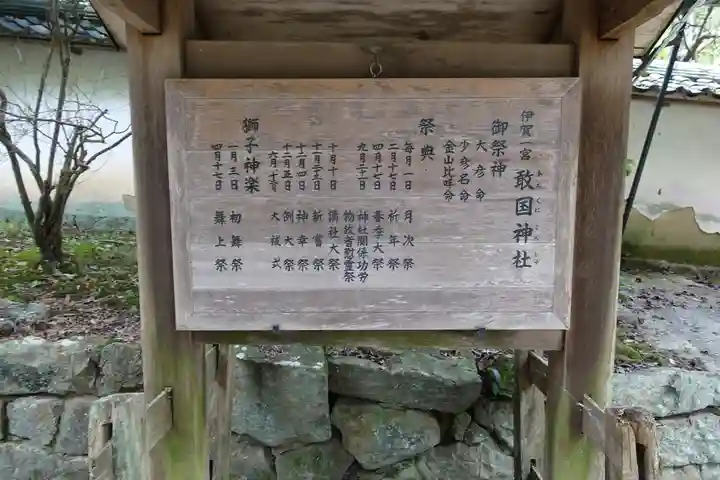 伊賀一宮 敢国神社
あえくに じんじゃ
御祭神
大彦命
少彦名命
金山比咩命
祭典
毎月一日 月次祭
二月十七日 祈年祭
四月十七日 春季大祭
九月二十一日 神社関係功労物故者慰霊祭
十月十日 講社大祭
十一月二十三日 新嘗祭
十二月四日 神幸祭
十二月五日 例大祭
大祓式
獅子神楽
一月三日 初舞祭
四月十七日 舞上祭